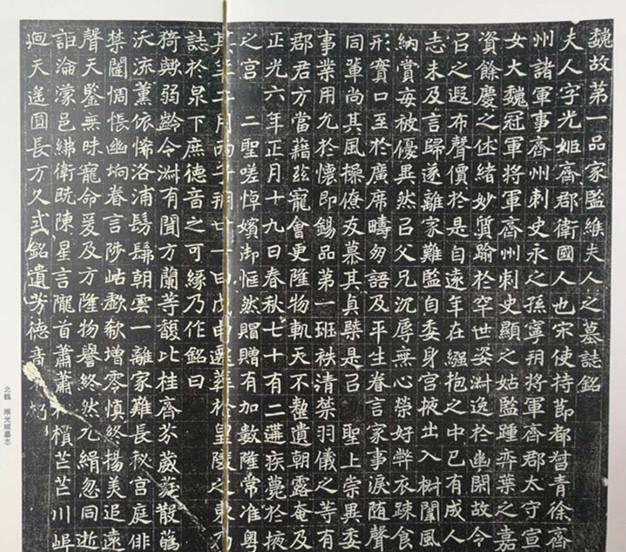 魏故第一品家監緱夫人之墓誌銘
夫人字光姬齊郡衛國人也宋使持節都督青徐齊
州諸軍事齊州刺史永之孫寧朔將軍齊郡太守宣
女大魏冠軍將軍齊州刺史顯之姑監踵弈葉之嘉
資餘慶之遠緒妙質踰於罕世姿淑逸於幽閑故令
㠯之遐布聲價於是自遠年在繦抱之中已有成人
志未及言歸遂離家難監自委身宮掖出入樹闈風
納賞每被優異然㠯父兄沉辱無心榮好弊衣疎食
形實口至於廣席疇㫚語及平生眷言家事淚随聲
同輩尚其風操僚友慕其貞槩是㠯聖上崇異委
事業用允於懷即錫品第一班袟清禁羽儀之等有
郡君方當藉兹寵會更隆物軌天不整遺朝露奄及
正光六年正月十九日春秋七十有二遘疾薨於掖
之宮二聖嗟悼嬪御悵然賵贈有加數隆常准粤
其年二月丙子朔廿一日遷葬於皇陵之東乃
誌於泉下庶德音之可緣乃作銘曰
猗歟弱齡令淑有聞方蘭等馥比桂齊芬葳蕤散
沃流薰依悕洛浦髣髴朝雲一離家難長秘宮庭俳
禁闥惆悵幽坰眷言陟岵歔欷增零慎終揚美追遠
聲天鑒無昧寵命爰及方隆物譽終然允緝忽同逝
詎淪濛邑綈衛既陳星言隴首蕭蕭櫕芒芒川埠
迥天遥圓長方久式銘遺芳德音
北魏 緱光姬墓志